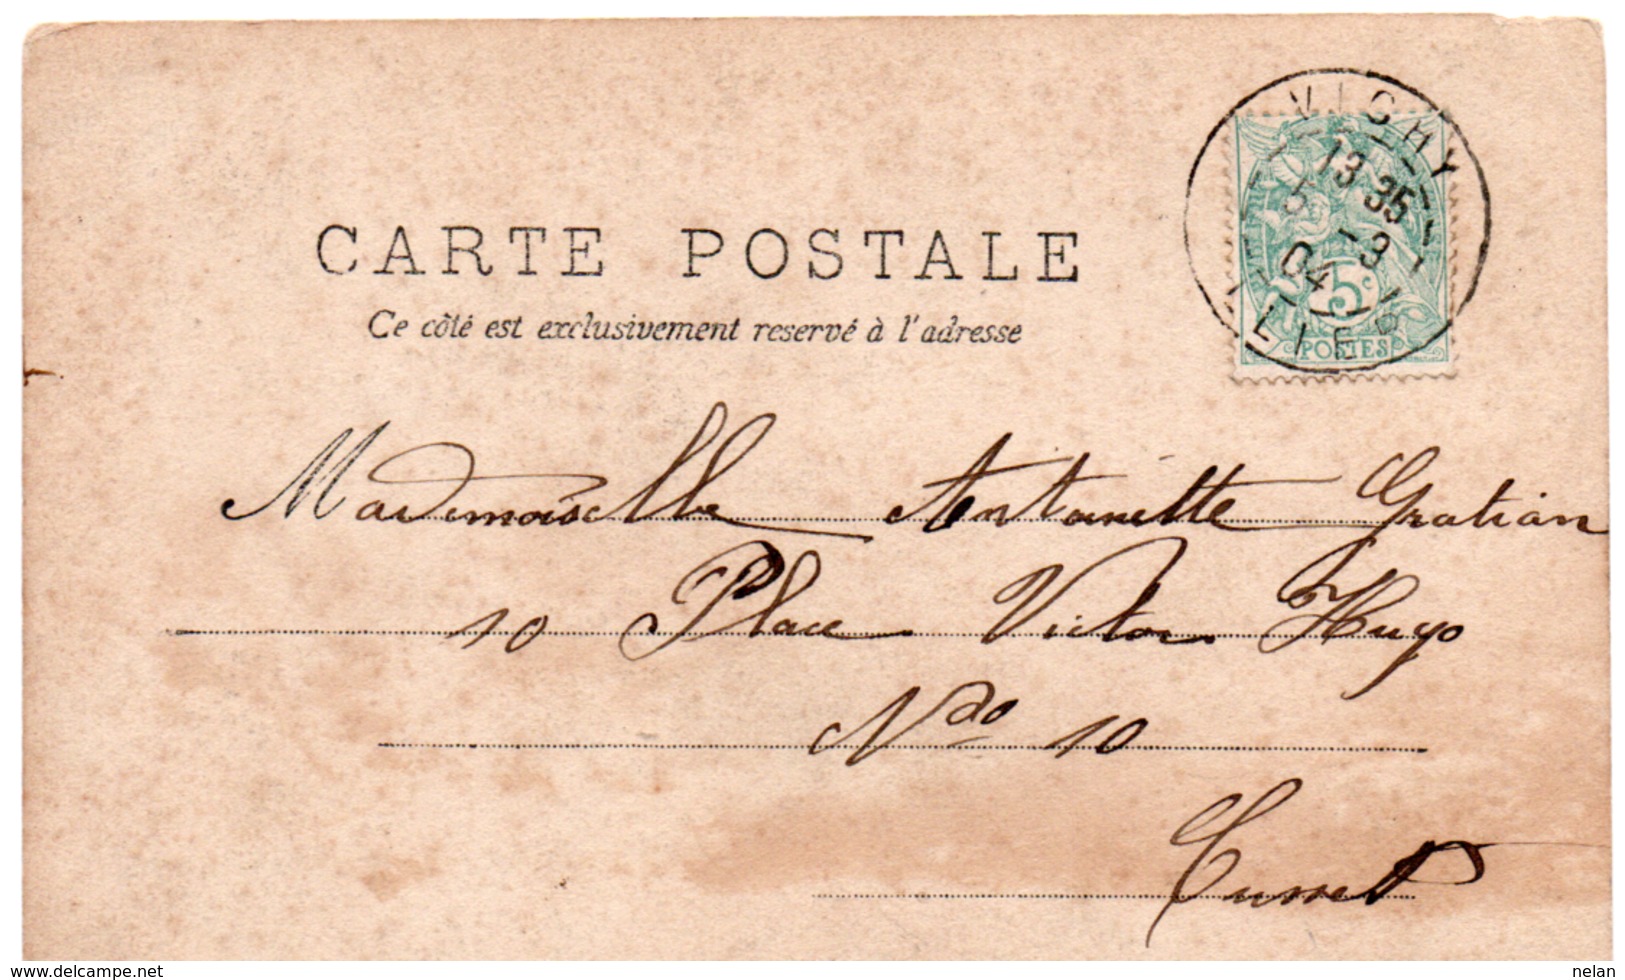 CARTE POSTALE
Ce côté est exclusivement reservé à l'adresse
VICHY
13 35
5 -9
04
ALLIER
5c
POSTES
Mademoiselle Antoinette Gratian
10 Place Victor Hugo
10
Cusset
www.delcampe.net
nelan